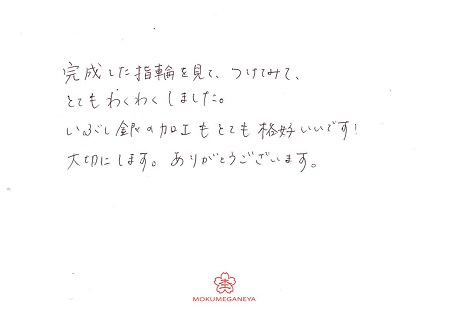 完成した指輪を見て、つけてみて、
とてもわくわくしました。
いぶし銀の加工もとても格好いいです!
大切にします。ありがとうございます。
MOKUMEGANEYA